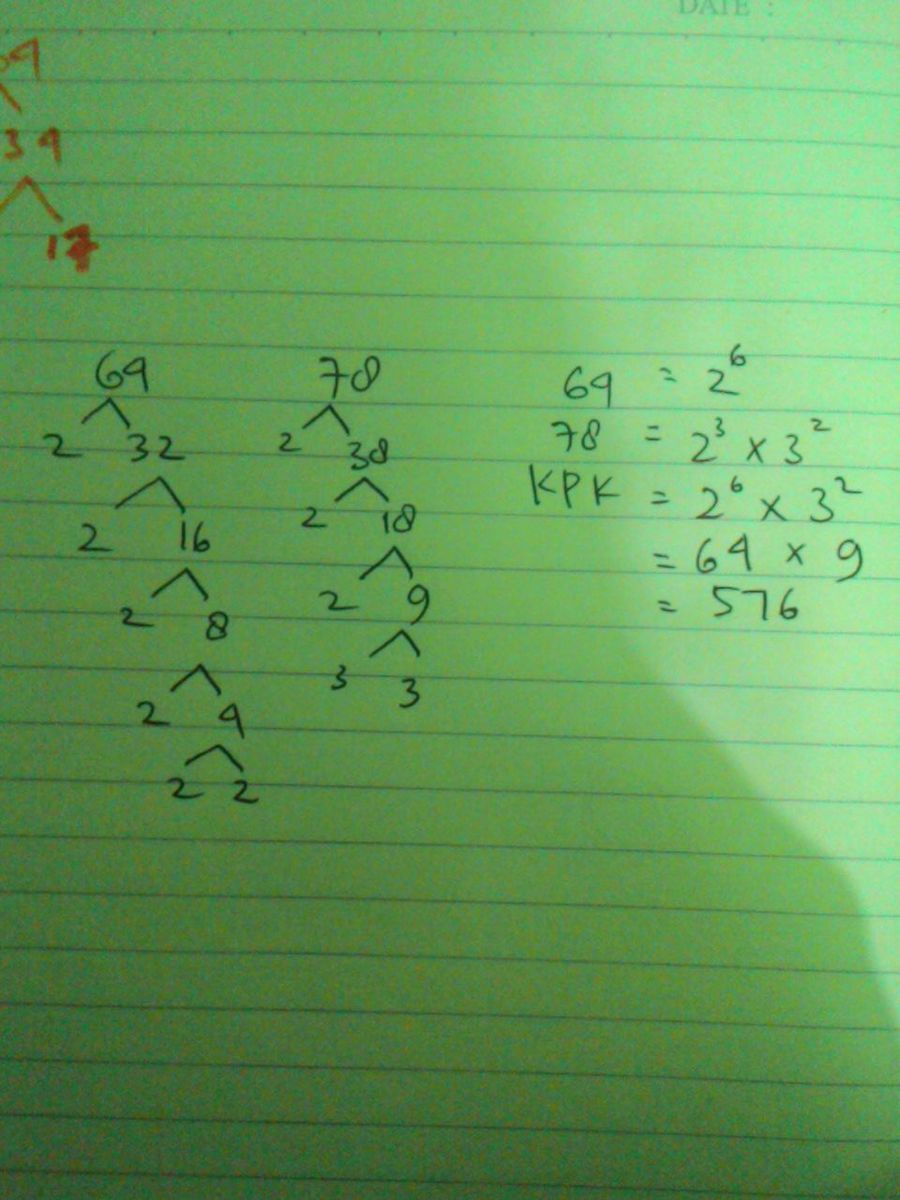 DATE :
34
17
64
2 32
2 16
2 8
2 4
2 2
78
2 38
2 18
2 9
3 3
64 = 2⁶
78 = 2³ x 3²
KPK = 2⁶ x 3²
= 64 x 9
= 576